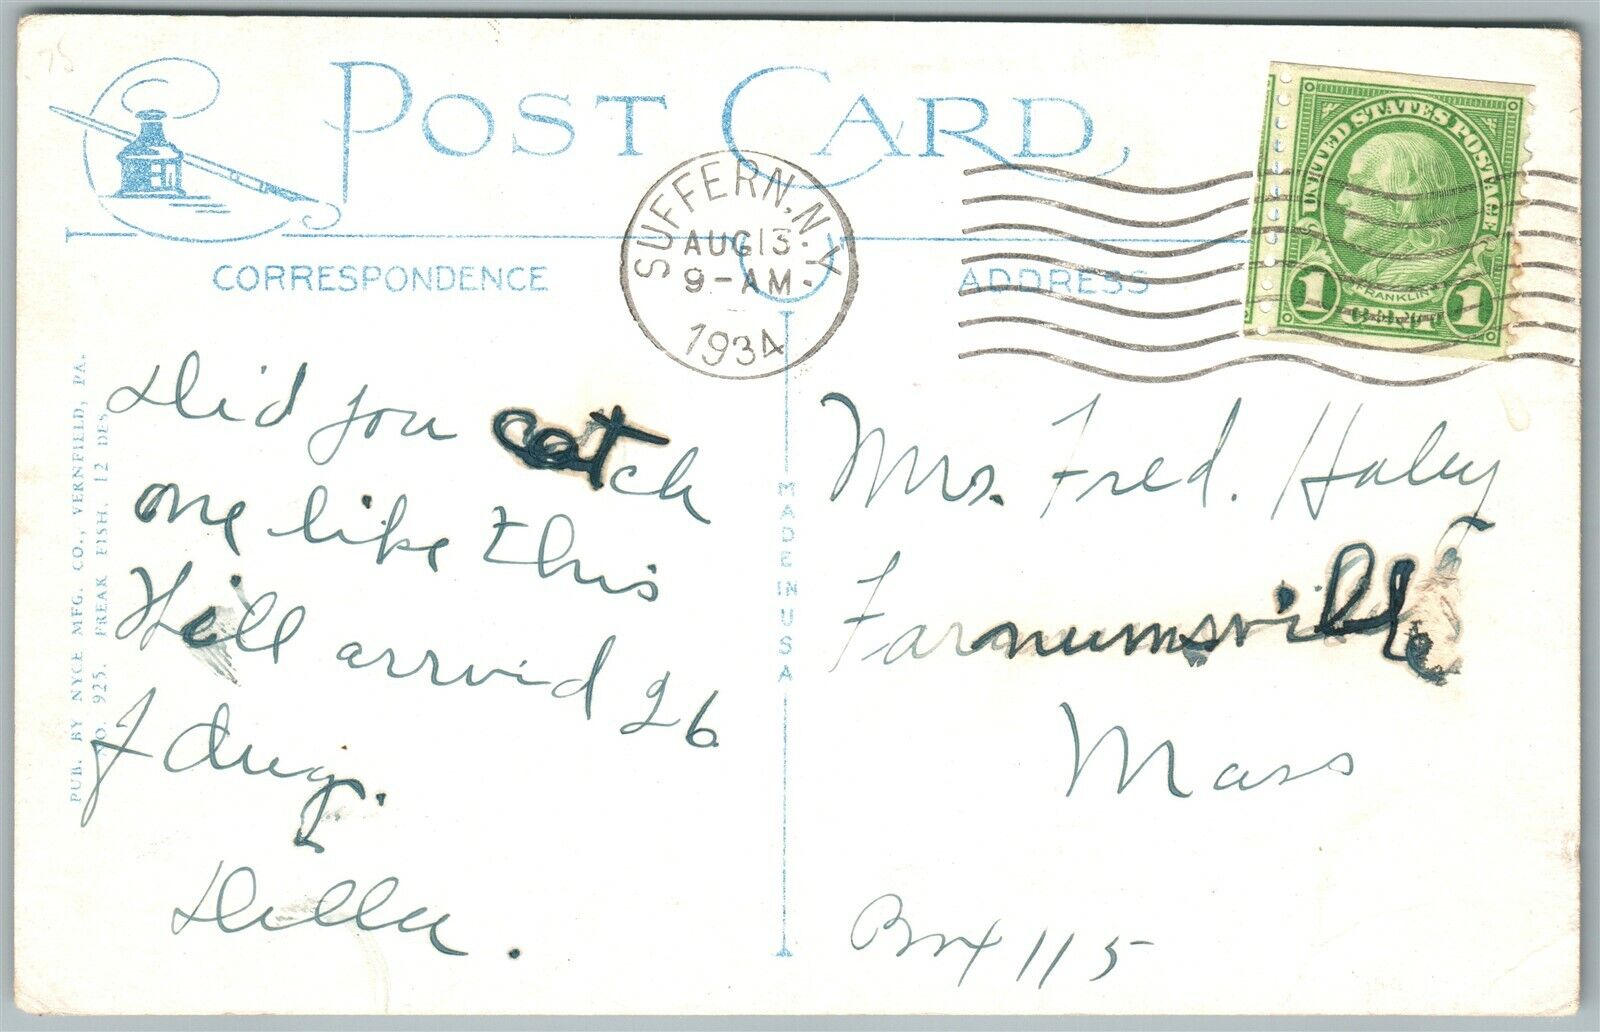 POST CARD
CORRESPONDENCE
ADDRESS
SUFFERN, N.Y.
AUG 13
9-AM
1934
UNITED STATES POSTAGE
1 FRANKLIN 1
PUB. BY NYCE MFG. CO., VERNFIELD, PA.
NO. 925. FREAK FISH. 12 DES.
MADE IN USA
Did you catch
one like this
arrvid 26
Della.
Mrs. Fred. Haley
Farnumsville
Mass
Box 115
75